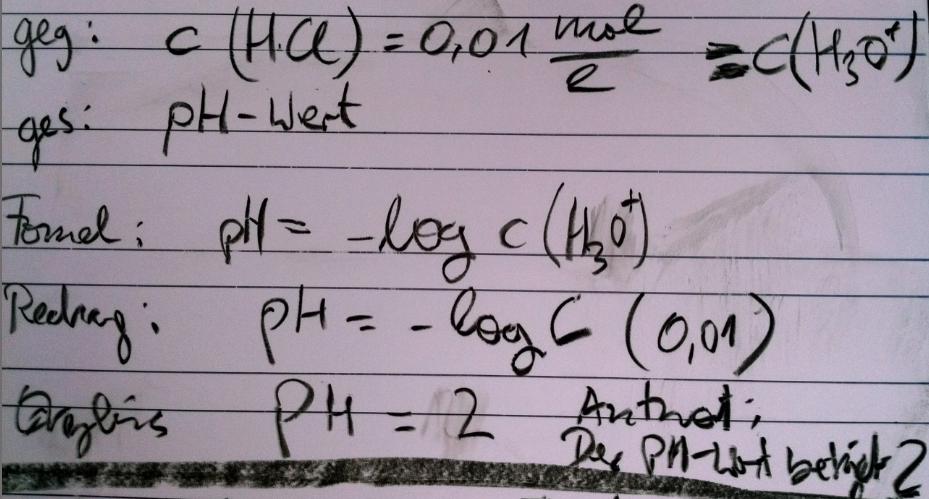 geg: c (HCl) = 0,01 mol/l = c(H₃O⁺)
ges: pH-Wert
Formel: pH = -log c (H₃O⁺)
Rechnung: pH = -log C (0,01)
Ergebnis PH = 2 Antwort:
Der PH-Wert beträgt 2